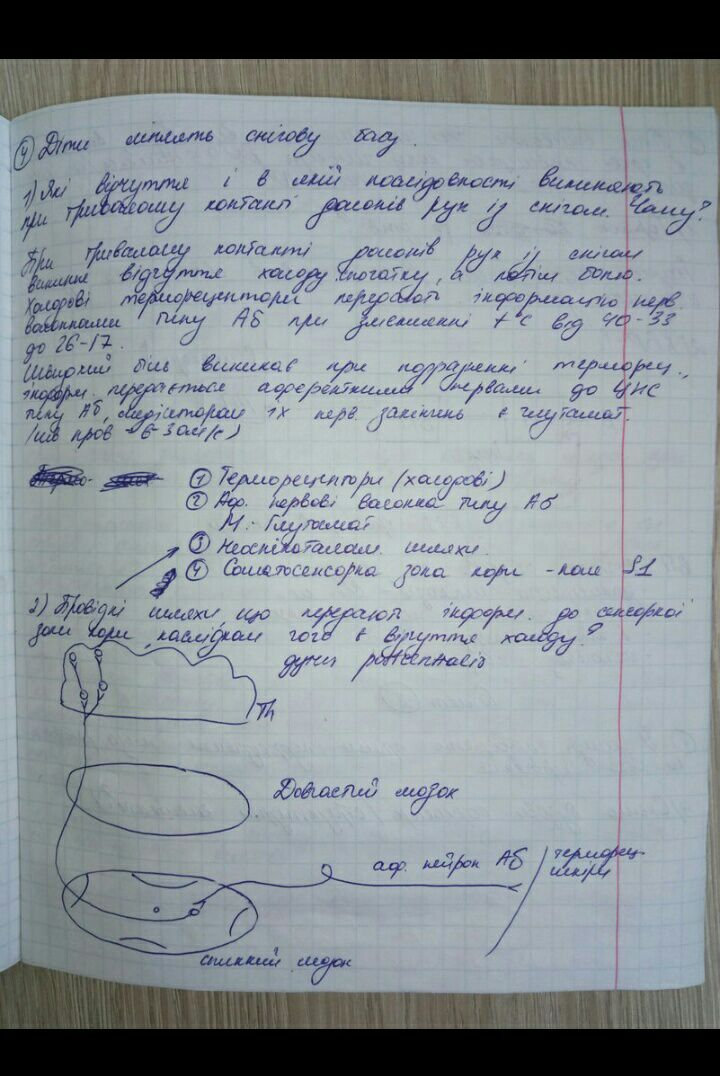 ④ Діти ліплять снігову бабу.
1) Які відчуття і в якій послідовності виникають
при тривалому контакті долонів рук із снігом. Чому?
При тривалому контакті долонів рук із снігом
виникне відчуття холоду спочатку, а потім болю.
Холодові терморецептори передають інформацію нерв.
волокнами типу Аδ при зменшенні t°C від 40-33
до 26-17.
Швидкий біль виникає при подразненні терморец.,
інформ. передається аферентними нервами до ЦНС
типу Аδ, медіатором їх нерв. закінчень є глутамат.
(шв пров - 6-30м/с)
① Терморецептори (холодові)
② Аф. нервові волокна типу Аδ
М.- Глутамат
③ Неоспіноталам. шляхи.
④ Соматосенсорна зона кори - поле S1
2) Провідні шляхи що передають інформ. до сенсорної
зони кори, наслідком чого є відчуття холоду?
gyrus postcentralis
Th
Довгастий мозок
аф. нейрон Аδ
терморец.
шкіри
спинний мозок